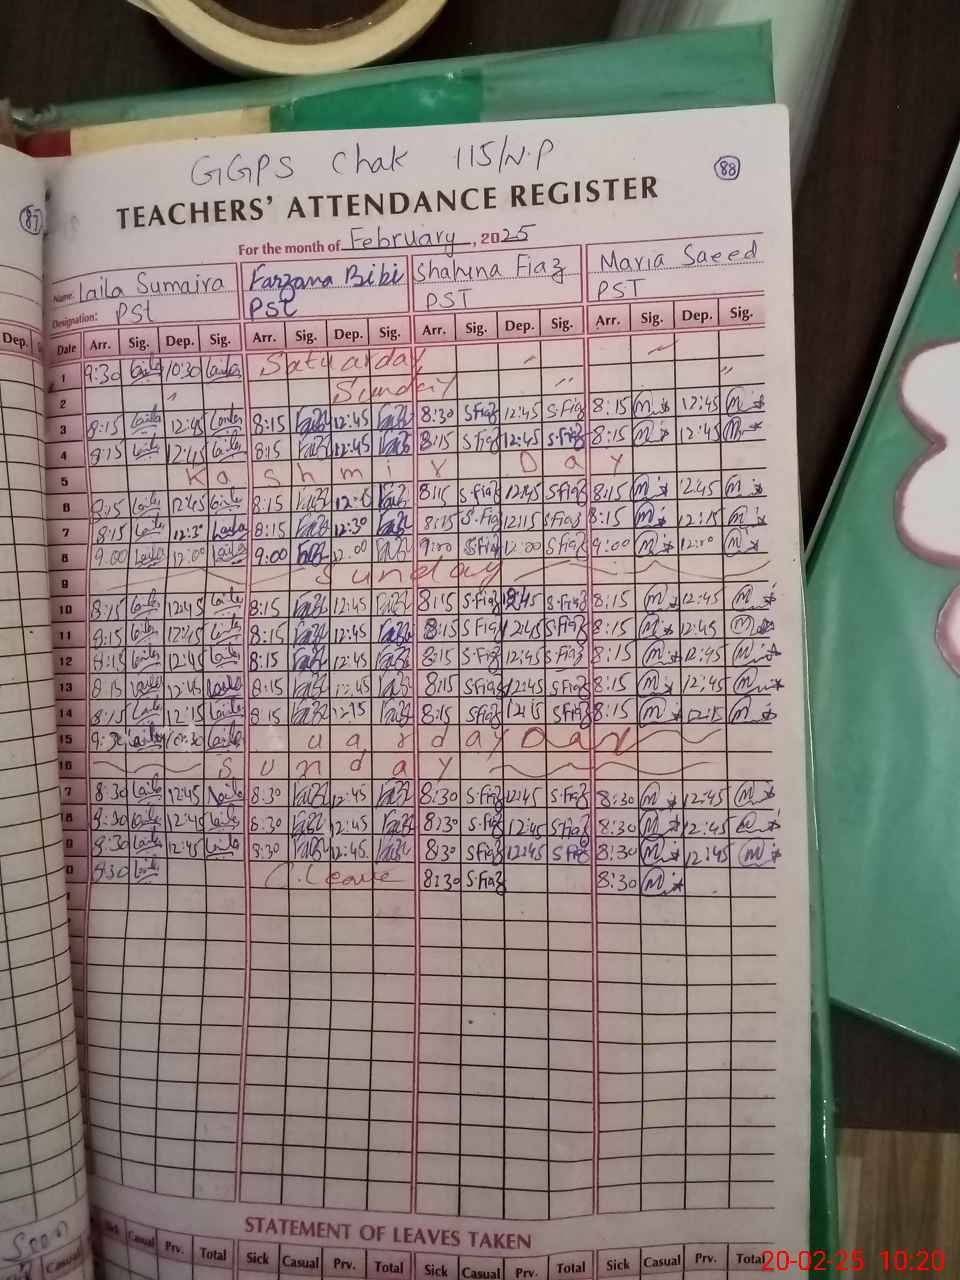 GGPS Chak 115/N.P
88
87
TEACHERS' ATTENDANCE REGISTER
For the month of February, 2025
Name. Laila Sumaira Farzana Bibi Shahina Fiaz Maria Saeed
Designation: PSt PSt PST PST
Dep.
Date Arr. Sig. Dep. Sig. Arr. Sig. Dep. Sig. Arr. Sig. Dep. Sig. Arr. Sig. Dep. Sig.
1 9:30 Laila 10:30 Laila Saturday
2 Sunday
3 8:15 Laila 12:45 Laila 8:15 12:45 8:30 S.Fiaz 12:45 S.Fiaz 8:15 12:45
4 8:15 Laila 12:45 Laila 8:15 12:45 8:15 S.Fiaz 12:45 S.Fiaz 8:15 12:45
5 Kashmir Day
6 8:15 Laila 12:45 Laila 8:15 8:15 S.Fiaz 12:45 S.Fiaz 8:15 12:45
7 8:15 Laila 12:30 Laila 8:15 12:30 8:15 S.Fiaz 12:15 S.Fiaz 8:15 12:15
8 9:00 Laila 12:00 Laila 9:00 12:00 9:00 S.Fiaz 12:00 S.Fiaz 9:00 12:00
9 Sunday
10 8:15 Laila 12:45 Laila 8:15 12:45 8:15 S.Fiaz 12:45 S.Fiaz 8:15 12:45
11 8:15 Laila 12:45 Laila 8:15 12:45 8:15 S.Fiaz 12:45 S.Fiaz 8:15 12:45
12 8:15 Laila 12:45 Laila 8:15 12:45 8:15 S.Fiaz 12:45 S.Fiaz 8:15 12:45
13 8:15 Laila 12:45 Laila 8:15 12:45 8:15 S.Fiaz 12:45 S.Fiaz 8:15 12:45
14 8:15 Laila 12:15 Laila 8:15 12:15 8:15 S.Fiaz 12:15 S.Fiaz 8:15 12:15
15 9:30 Laila 10:30 Laila
16 Sunday
7 8:30 Laila 12:45 Laila 8:30 12:45 8:30 S.Fiaz 12:45 S.Fiaz 8:30 12:45
8 8:30 Laila 12:45 Laila 8:30 12:45 8:30 S.Fiaz 12:45 S.Fiaz 8:30 12:45
9 8:30 Laila 12:45 Laila 8:30 12:45 8:30 S.Fiaz 12:45 S.Fiaz 8:30 12:45
0 8:30 Laila C.Leave 8:30 S.Fiaz 8:30
STATEMENT OF LEAVES TAKEN
Casual Sick Casual Prv. Total Sick Casual Prv. Total Sick Casual Prv. Total Sick Casual Prv. Total
20-02-25 10:20